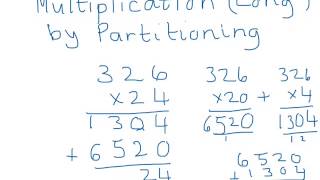 Multiplication (Long)
by Partitioning
326 326 326
x24 x20 + x4
1304 6520 1304
+ 6520 1 12
24 6520
+ 1304